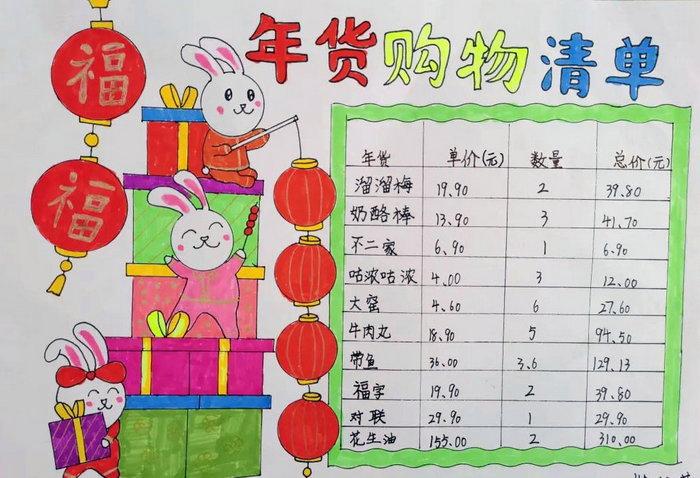 年货购物清单
福
福
年货 单价(元) 数量 总价(元)
溜溜梅 19.90 2 39.80
奶酪棒 13.90 3 41.70
不二家 6.90 1 6.90
咕浓咕浓 4.00 3 12.00
大窑 4.60 6 27.60
牛肉丸 18.90 5 94.50
带鱼 36.00 3.6 129.13
福字 19.90 2 39.80
对联 29.90 1 29.90
花生油 155.00 2 310.00